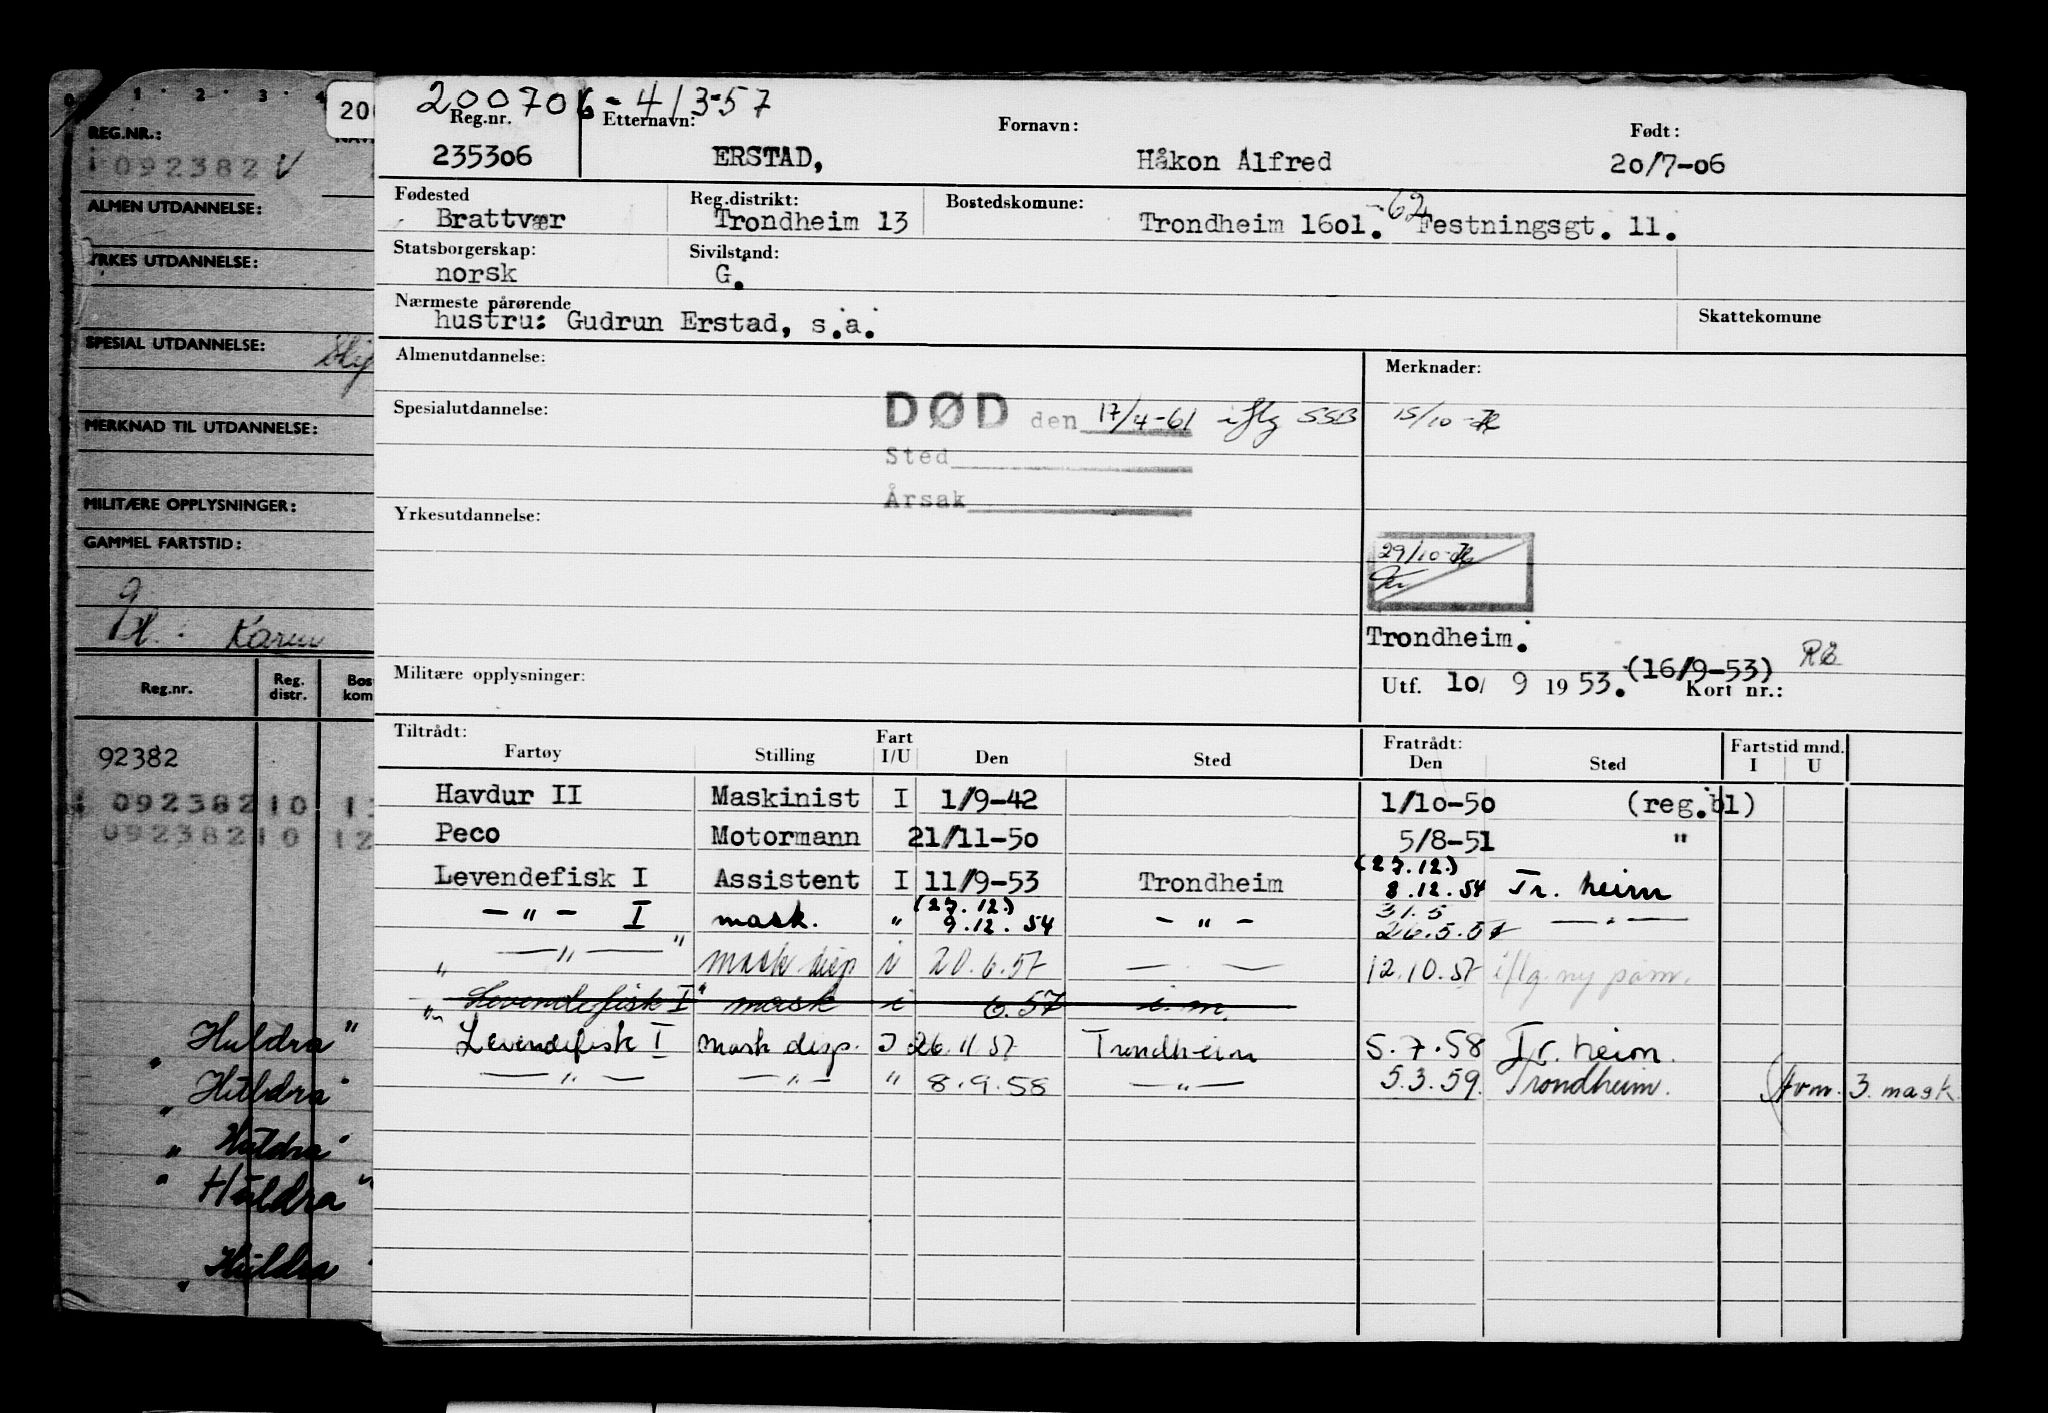 0 1 2 3 4
REG.NR.:
i 092382 V
ALMEN UTDANNELSE:
YRKES UTDANNELSE:
SPESIAL UTDANNELSE:
MERKNAD TIL UTDANNELSE:
MILITÆRE OPPLYSNINGER:
GAMMEL FARTSTID:
Karen
Reg.nr. Reg. distr. Bos kom
92382
09238210 1
09238210 12
"Huldra"
"Huldra"
"Huldra"
"Huldra"
"Huldra"
200706-41357
Reg.nr. Etternavn: Fornavn: Født:
235306 ERSTAD, Håkon Alfred 20/7-06
Fødested Reg.distrikt: Bostedskomune:
Brattvær Trondheim 13 Trondheim 1601.-62 Festningsgt. 11.
Statsborgerskap: Sivilstand:
norsk G.
Nærmeste pårørende Skattekomune
hustru: Gudrun Erstad, s.a.
Almenutdannelse: Merknader:
Spesialutdannelse: DØD den 17/4-61 iflg SSB 15/10-
Sted
Årsak
Yrkesutdannelse:
29/10-
Trondheim.
Militære opplysninger: Utf. 10/ 9 1953. (16/9-53) Kort nr.:
Tiltrådt: Fratrådt: Fartstid mnd.
Fartøy Stilling Fart I/U Den Sted Den Sted I U
Havdur II Maskinist I 1/9-42 1/10-50 (reg.bl)
Peco Motormann 21/11-50 5/8-51 "
Levendefisk I Assistent I 11/9-53 Trondheim (27.12.) 8.12.54 Tr.heim
-"- I mask. " (27.12.) 9.12.54 -"- 31.5 26.5.57 -"-
" -"- " mask disp i 20.6.57 -"- 12.10.57 iflg. ny påm.
"Levendefisk I" mask i 6.57 i.m.
" Levendefisk I mask disp. I 26.11.57 Trondheim 5.7.58 Tr.heim.
-"- -"- " 8.9.58 -"- 5.3.59. Trondheim. (tvm. 3. mask.